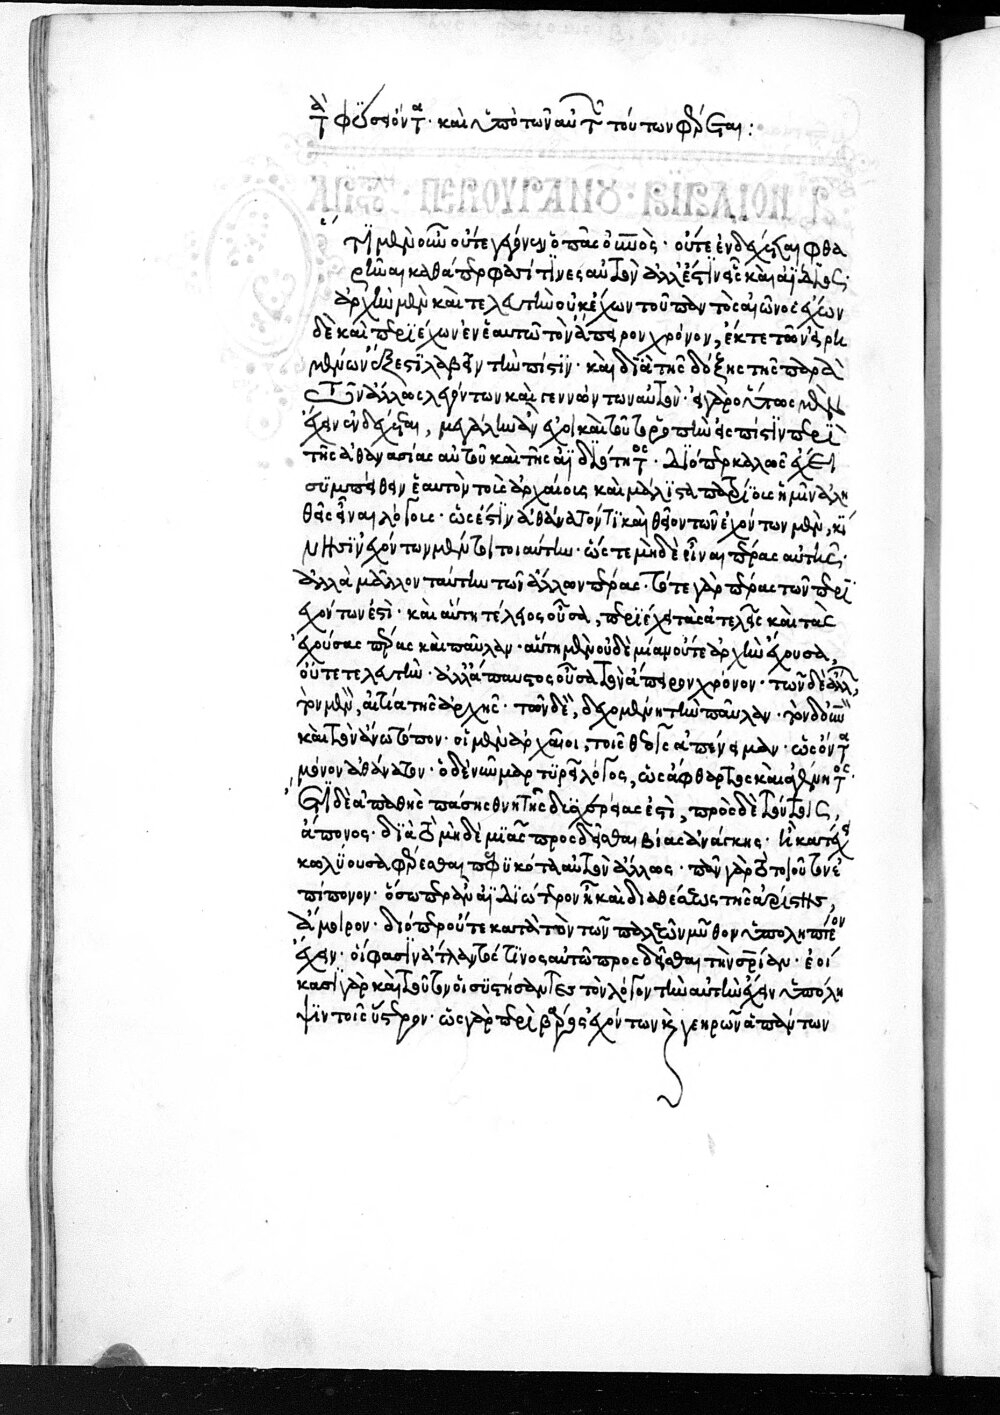 διὰ τὸ φύσει ὄντα· καὶ ὑπὸ τῶν αὐτῶν τούτων φθείρεται:
Ὅτι μὲν οὖν οὔτε γέγονεν ὁ πᾶς οὐρανὸς· οὔτε ἐνδέχεται φθα
ρῆναι καθάπερ φασί τινες αὐτὸν ἀλλ' ἔστιν εἷς καὶ ἀΐδιος·
ἀρχὴν μὲν καὶ τελευτὴν οὐκ ἔχων τοῦ παντὸς αἰῶνος ἔχων
δὲ καὶ περιέχων ἐν ἑαυτῷ τὸν ἄπειρον χρόνον, ἔκ τε τῶν εἰρη
μένων ἔξεστι λαβεῖν τὴν πίστιν· καὶ διὰ τῆς δόξης τῆς παρὰ
τῶν ἄλλως λεγόντων καὶ γεννώντων αὐτὸν· εἰ γὰρ οὕτως μὲν
ἔχειν ἐνδέχεται, μεγάλην ἂν ἔχοι καὶ τοῦτο ῥοπὴν εἰς πίστιν περὶ
τῆς ἀθανασίας αὐτοῦ καὶ τῆς ἀϊδιότητος· διόπερ καλῶς ἔχει
συμπείθειν ἑαυτὸν τοὺς ἀρχαίους καὶ μάλιστα πατρίους ἡμῶν ἀλη
θεῖς εἶναι λόγους· ὡς ἔστιν ἀθάνατόν τι καὶ θεῖον τῶν ἐχόντων μὲν, κί
νησιν ἐχόντων μέντοι τοιαύτην· ὥστε μηδὲν εἶναι πέρας αὐτῆς·
ἀλλὰ μᾶλλον ταύτην τῶν ἄλλων πέρας· τό τε γὰρ πέρας τῶν περι
εχόντων ἐστὶ· καὶ αὕτη τέλειος οὖσα, περιέχει τὰς ἀτελεῖς καὶ τὰς
ἐχούσας πέρας καὶ παῦλαν· αὕτη μὲν οὐδεμίαν οὔτε ἀρχὴν ἔχουσα,
οὔτε τελευτὴν· ἀλλ' ἄπαυστος οὖσα τὸν ἄπειρον χρόνον· τῶν δὲ ἄλλων,
τῶν μὲν, αἰτία τῆς ἀρχῆς· τῶν δὲ, δεχομένη τὴν παῦλαν· τὸν δ' οὐρανὸν
καὶ τὸν ἄνω τόπον· οἱ μὲν ἀρχαῖοι, τοῖς θεοῖς ἀπένειμαν· ὡς ὄντα
μόνον ἀθάνατον· ὁ δὲ νῦν μαρτυρεῖ λόγος, ὡς ἄφθαρτος καὶ ἀγένητος·
ἔτι δὲ ἀπαθὴς πάσης θνητῆς δυσχερείας ἐστὶ, πρὸς δὲ τούτοις,
ἄπονος· διὰ τὸ μηδεμιᾶς προσδεῖσθαι βιαίας ἀνάγκης· ἣ κατέχει
κωλύουσα φέρεσθαι πεφυκότα αὐτὸν ἄλλως· πᾶν γὰρ τὸ τοιοῦτον ἐ
πίπονον· ὅσῳ περ ἂν ἀϊδιώτερον ᾖ καὶ διαθέσεως τῆς ἀρίστης,
ἄμοιρον· διόπερ οὔτε κατὰ τὸν τῶν παλαιῶν μῦθον ὑποληπτέον
ἔχειν· οἵ φασιν ἄτλαντός τινος αὐτῷ προσδεῖσθαι τὴν σωτηρίαν· ἐοί
κασι γὰρ καὶ τοῦτον οἱ συστήσαντες τὸν λόγον τὴν αὐτὴν ἔχειν ὑπόλη
ψιν τοῖς ὕστερον· ὡς γὰρ περὶ βάρος ἐχόντων καὶ γεηρῶν ἁπάντων